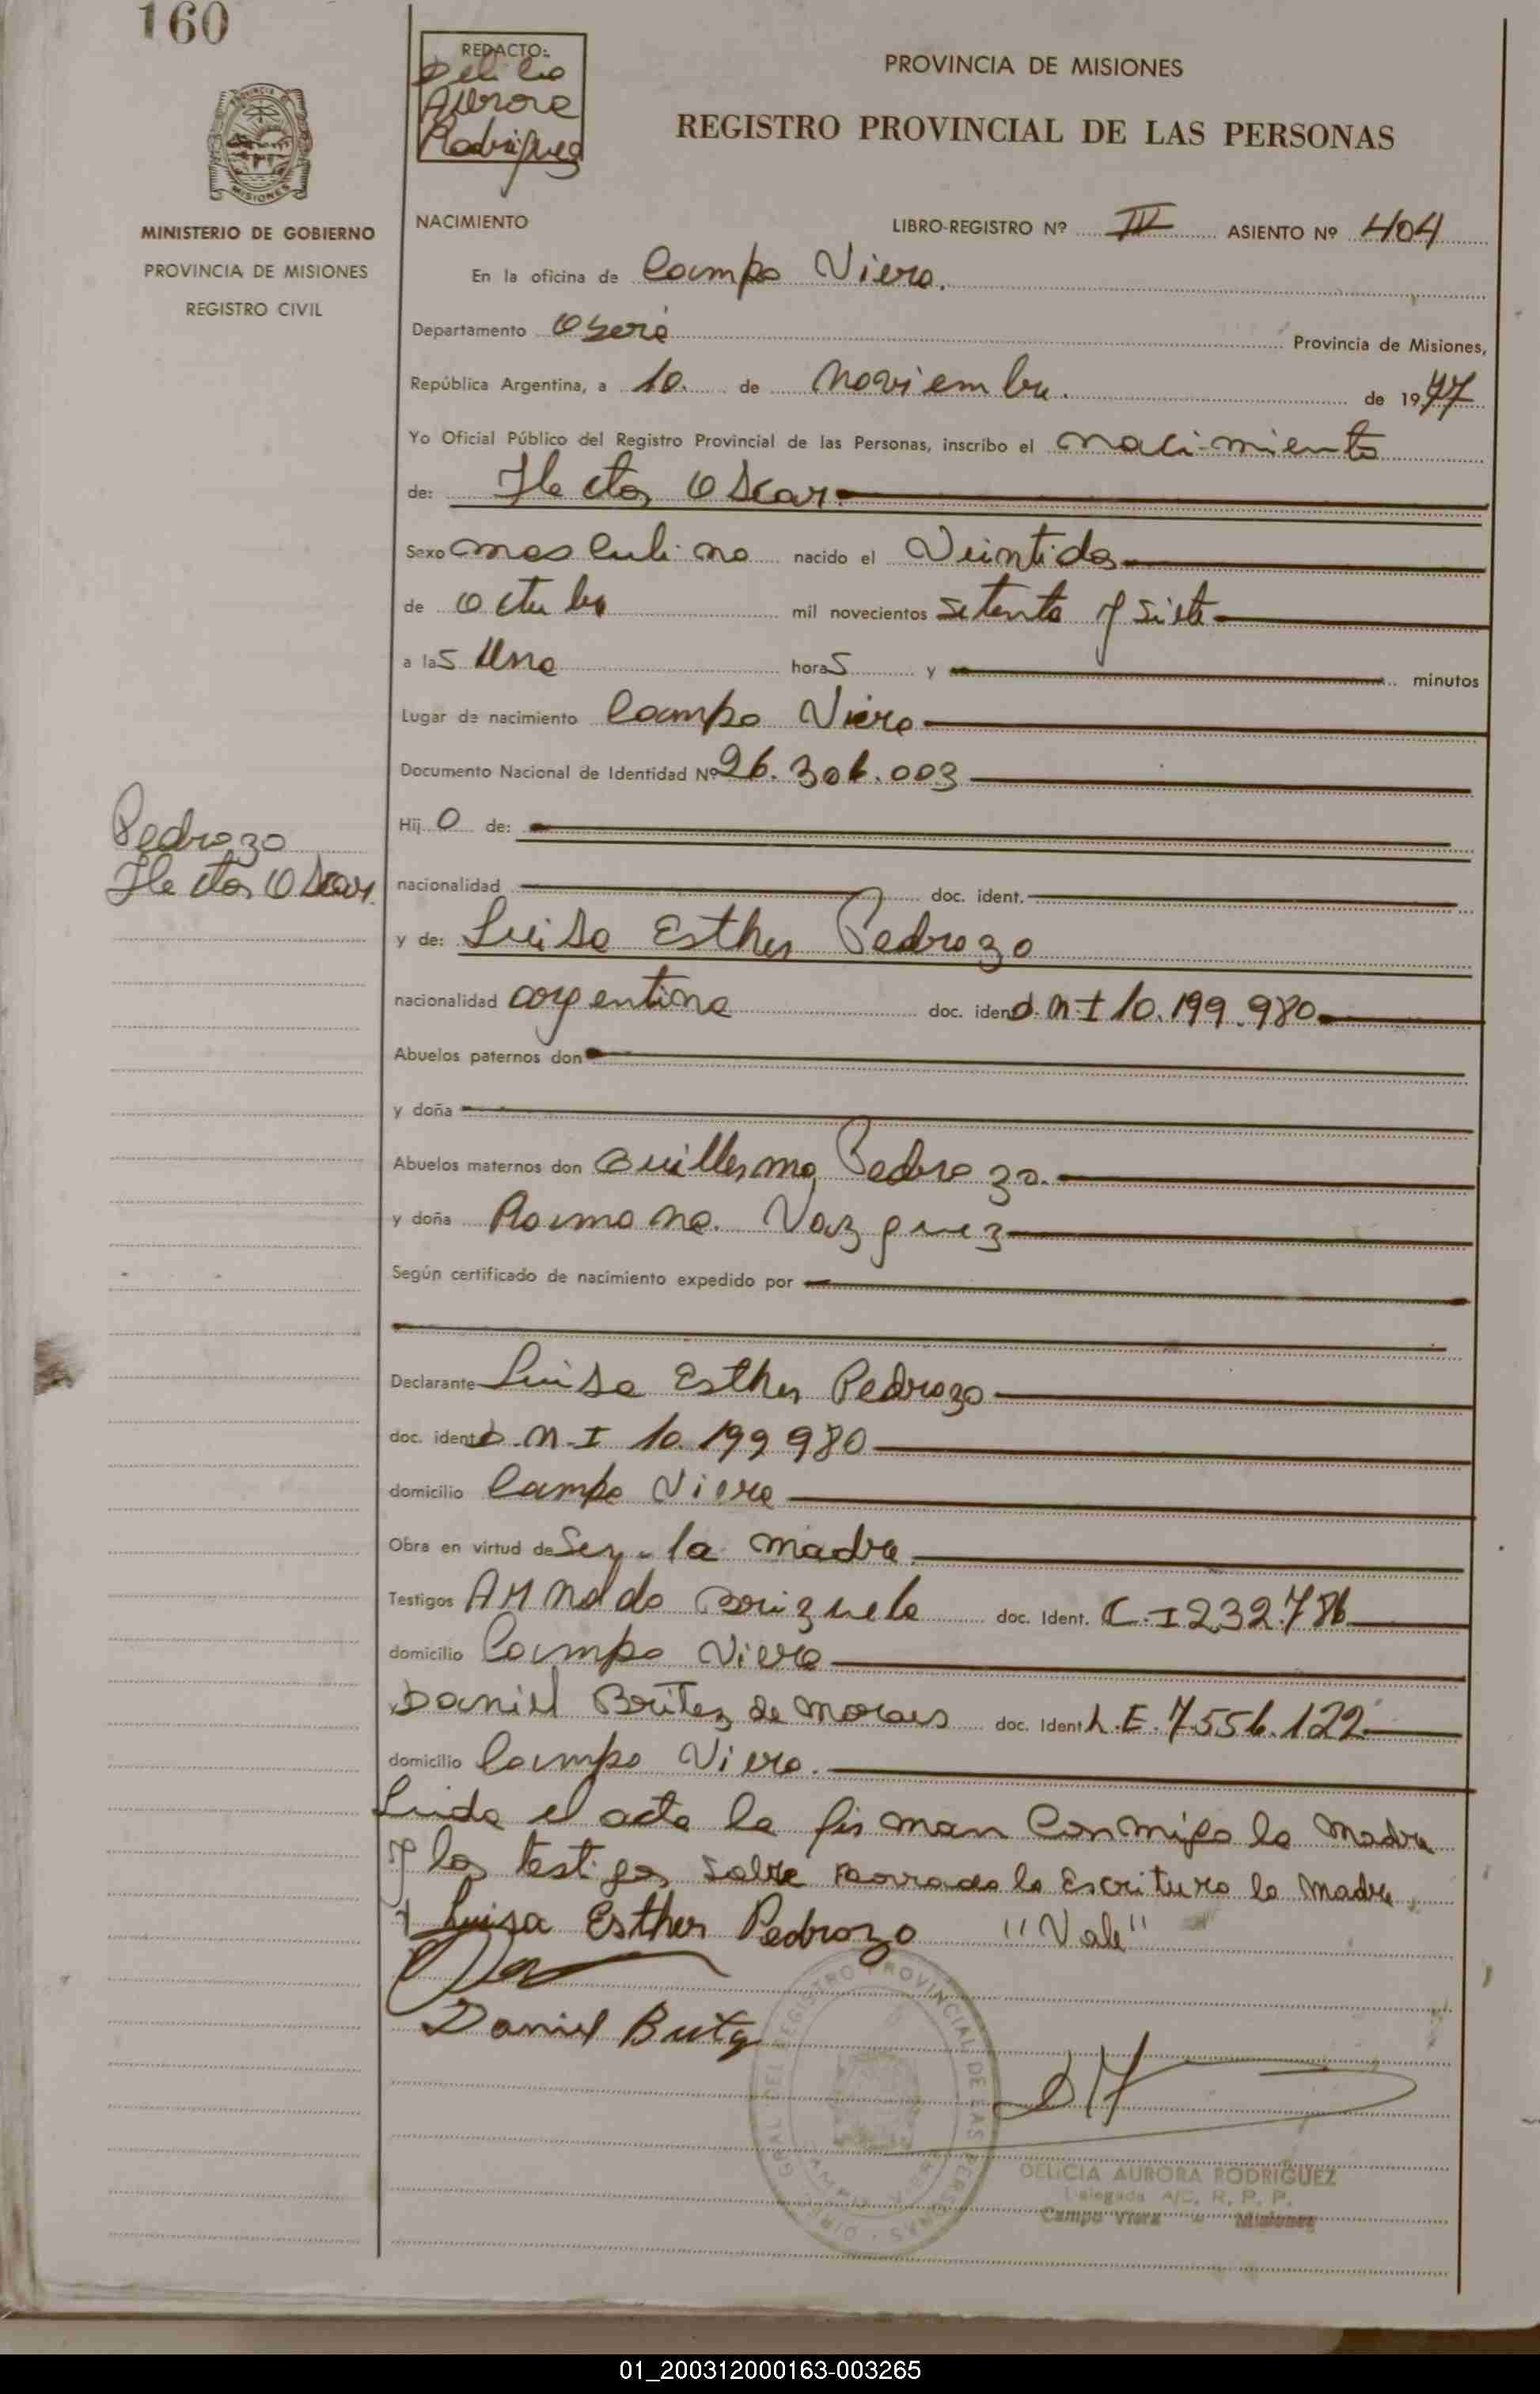 160
REDACTO:
Delicia
Aurora
Rodriguez
PROVINCIA DE MISIONES
REGISTRO PROVINCIAL DE LAS PERSONAS
PROVINCIA
MISIONES
MINISTERIO DE GOBIERNO
PROVINCIA DE MISIONES
REGISTRO CIVIL
NACIMIENTO LIBRO-REGISTRO Nº III ASIENTO Nº 404
En la oficina de Campo Viera.
Departamento Oberá Provincia de Misiones,
República Argentina, a 10. de Noviembre. de 1977
Yo Oficial Público del Registro Provincial de las Personas, inscribo el naci-miento
de: Hector Oscar.
Sexo masculino nacido el Veintidos
de octubre mil novecientos setenta y siete
a las Una horas y minutos
Lugar de nacimiento Campo Viera
Documento Nacional de Identidad Nº 26.306.003
Hijo de:
Pedrozo
Hector Oscar.
nacionalidad doc. ident.
y de: Luisa Esther Pedrozo
nacionalidad argentina doc. ident. D.N.I 10.199.980
Abuelos paternos don
y doña
Abuelos maternos don Guillermo Pedrozo.
y doña Ramona. Vazquez
Según certificado de nacimiento expedido por
Declarante Luisa Esther Pedrozo
doc. ident. D.N.I 10.199 980
domicilio Campo Viera
Obra en virtud de Ser la madre.
Testigos Arnaldo Brizuela doc. Ident. C.I 232.786
domicilio Campo Viera
Daniel Britez de Moraes doc. Ident. L.E. 7.556.122
domicilio Campo Viera.
Leida el acta la firman Conmigo la Madre
y los testigos sobre raspado la Escritura la Madre,
Luisa Esther Pedrozo "Vale"
Daniel Brite
REGISTRO PROVINCIAL DE LAS PERSONAS
DELICIA AURORA RODRIGUEZ
Delegada A/C. R. P. P.
Campo Viera - Misiones
01_200312000163-003265